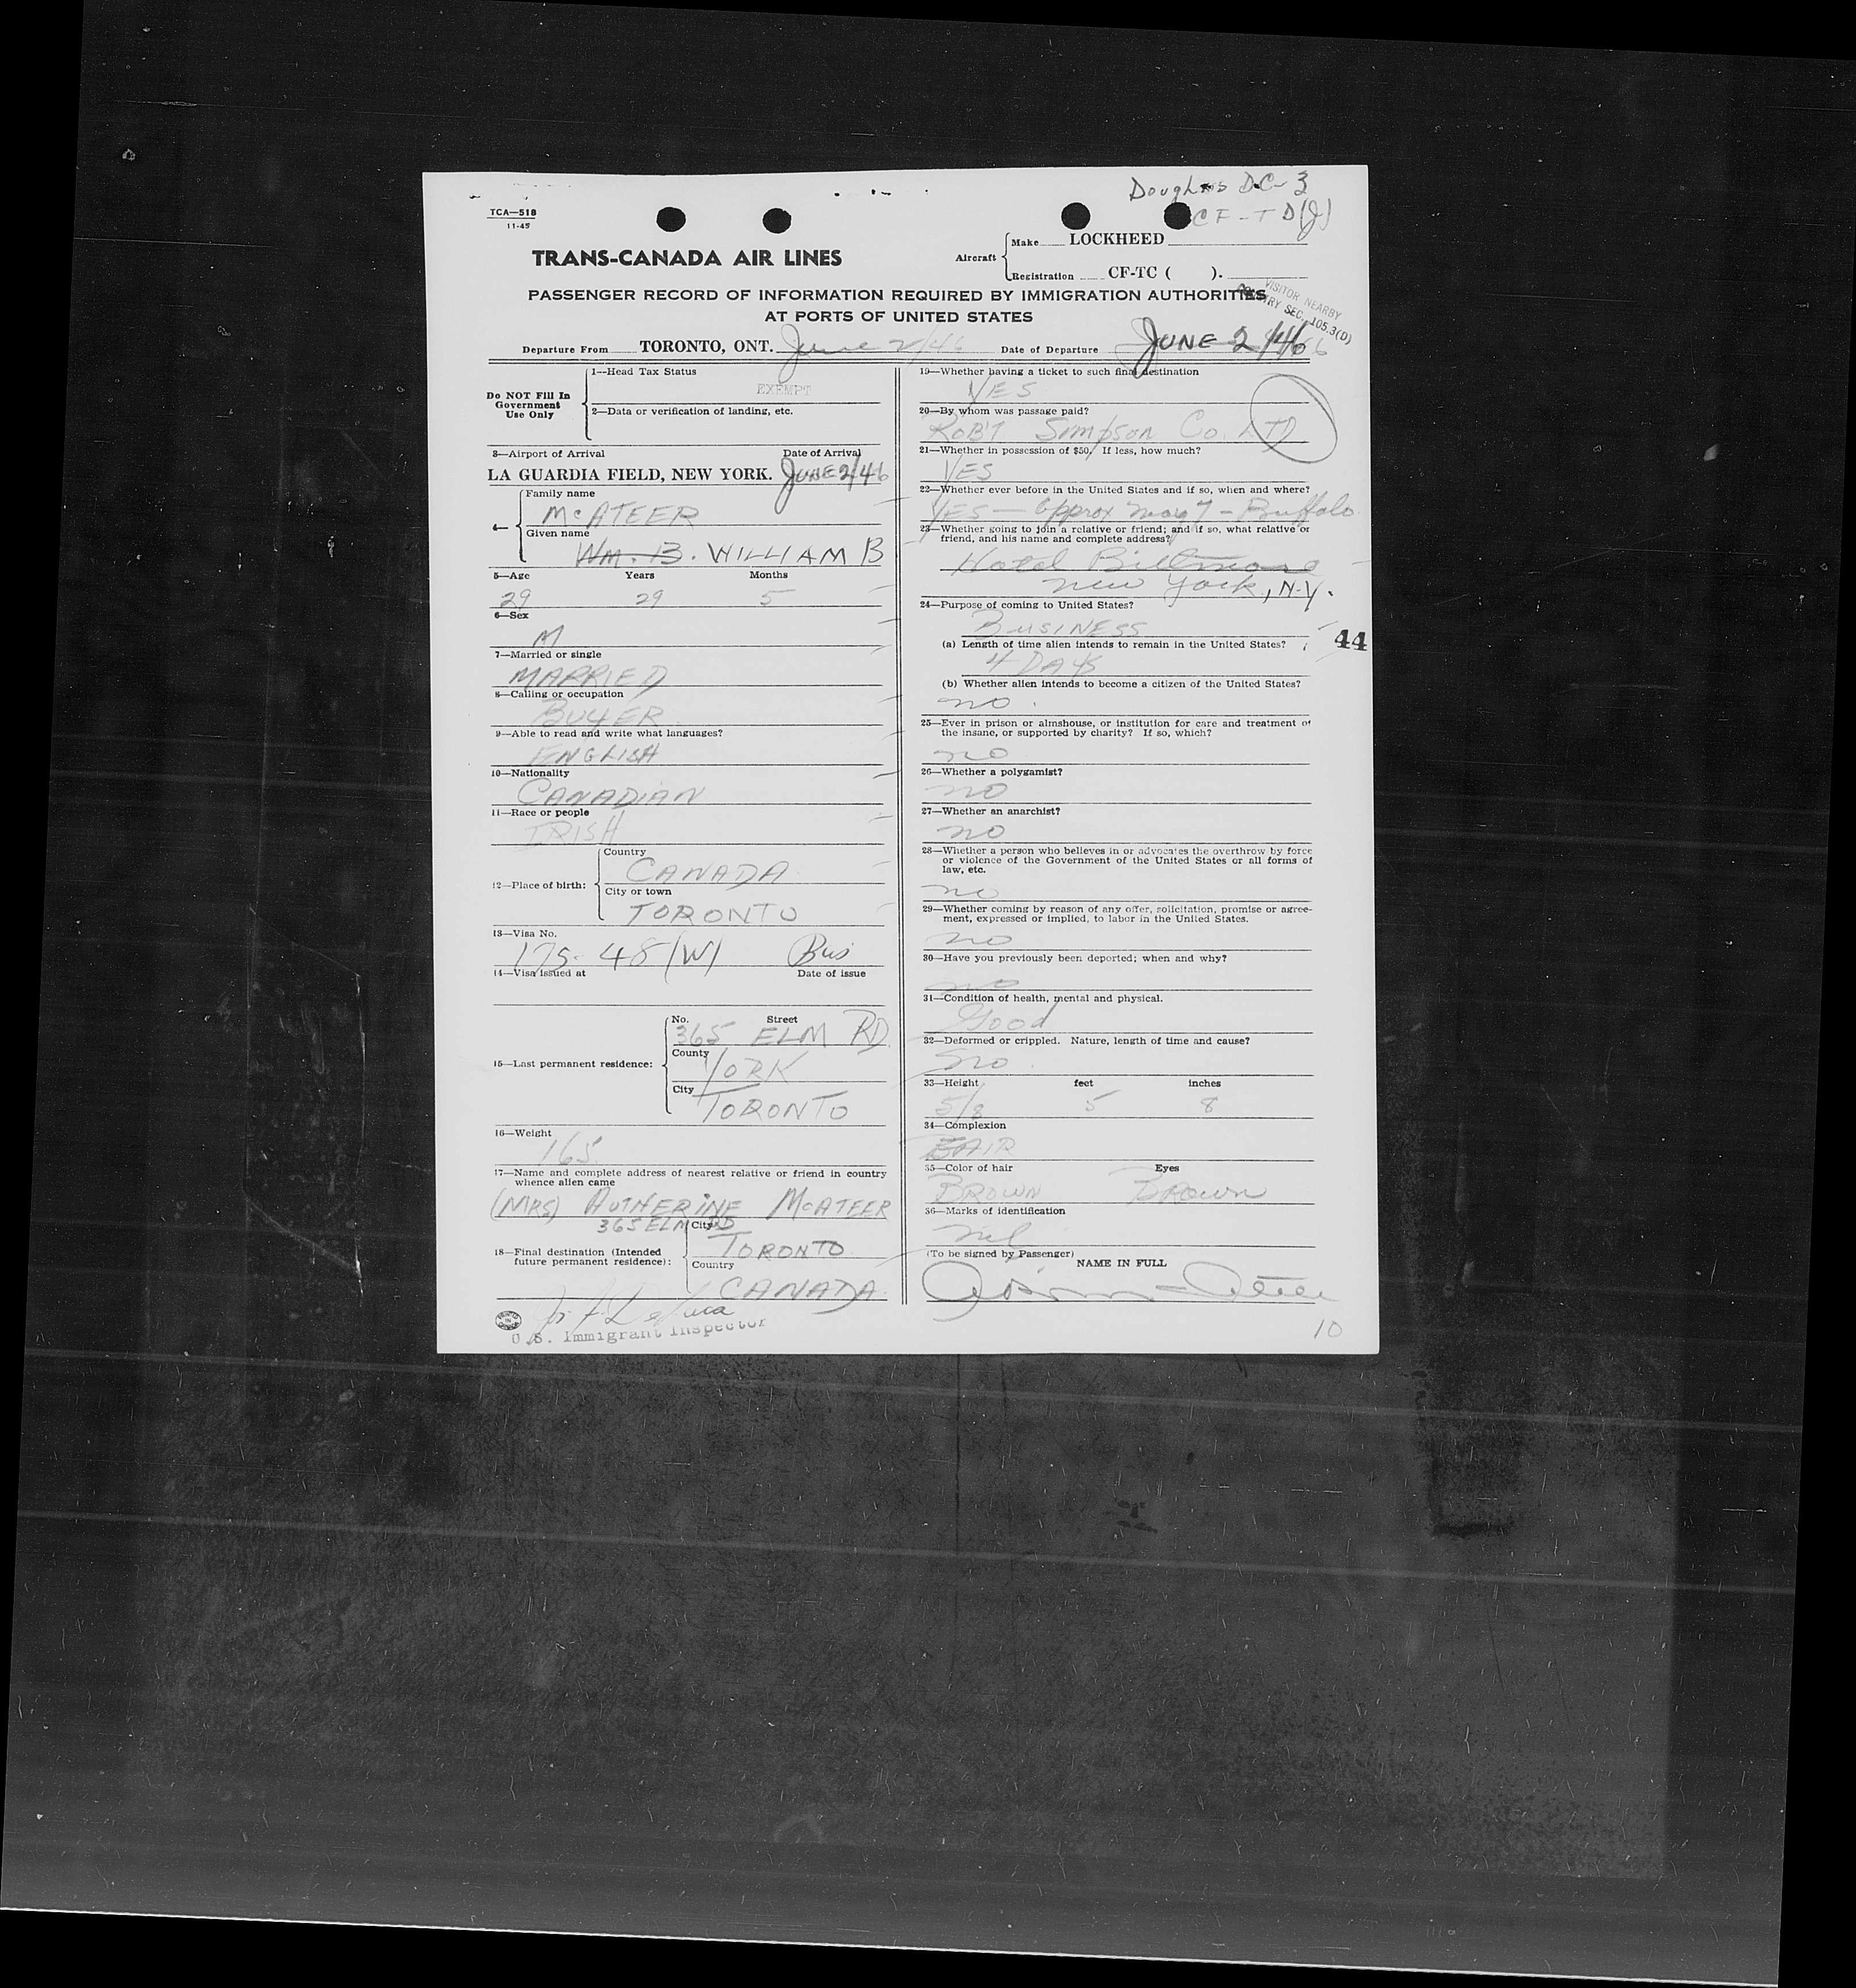 Douglas DC-3
CF-TD(J)
TCA—518
11-45
TRANS-CANADA AIR LINES
Aircraft
Make LOCKHEED
Registration CF-TC ( ).
PASSENGER RECORD OF INFORMATION REQUIRED BY IMMIGRATION AUTHORITIES
AT PORTS OF UNITED STATES
VISITOR NEARBY
COUNTRY SEC. 105.3(D)
Departure From TORONTO, ONT. June 2/46 Date of Departure JUNE 2/46
Do NOT Fill In
Government
Use Only
1—Head Tax Status
EXEMPT
2—Data or verification of landing, etc.
3—Airport of Arrival Date of Arrival
LA GUARDIA FIELD, NEW YORK. JUNE 2/46
4—
Family name
McATEER
Given name
Wm. B. WILLIAM B
5—Age Years Months
29 29 5
6—Sex
M
7—Married or single
MARRIED
8—Calling or occupation
BUYER
9—Able to read and write what languages?
ENGLISH
10—Nationality
CANADIAN
11—Race or people
IRISH
12—Place of birth:
Country
CANADA
City or town
TORONTO
13—Visa No.
175. 48(W) Bus
14—Visa issued at Date of issue
15—Last permanent residence:
No. Street
365 ELM RD
County
YORK
City
TORONTO
16—Weight
165
17—Name and complete address of nearest relative or friend in country
whence alien came
(MRS) McATEER
365 ELM RD
18—Final destination (Intended
future permanent residence):
City
TORONTO
Country
CANADA
U.S. Immigrant Inspector
19—Whether having a ticket to such final destination
YES
20—By whom was passage paid?
ROB'T Simpson Co. LTD
21—Whether in possession of $50. If less, how much?
YES
22—Whether ever before in the United States and if so, when and where?
YES — approx may 7 - Buffalo
23—Whether going to join a relative or friend; and if so, what relative or
friend, and his name and complete address?
Hotel Biltmore
new York, N.Y.
24—Purpose of coming to United States?
BUSINESS
44
(a) Length of time alien intends to remain in the United States?
4 DAYS
(b) Whether alien intends to become a citizen of the United States?
no.
25—Ever in prison or almshouse, or institution for care and treatment of
the insane, or supported by charity? If so, which?
no
26—Whether a polygamist?
no
27—Whether an anarchist?
no
28—Whether a person who believes in or advocates the overthrow by force
or violence of the Government of the United States or all forms of
law, etc.
no
29—Whether coming by reason of any offer, solicitation, promise or agree-
ment, expressed or implied, to labor in the United States.
no
30—Have you previously been deported; when and why?
no
31—Condition of health, mental and physical.
Good
32—Deformed or crippled. Nature, length of time and cause?
no
33—Height feet inches
5/8 5 8
34—Complexion
FAIR
35—Color of hair Eyes
BROWN BROWN
36—Marks of identification
nil
(To be signed by Passenger)
NAME IN FULL
10